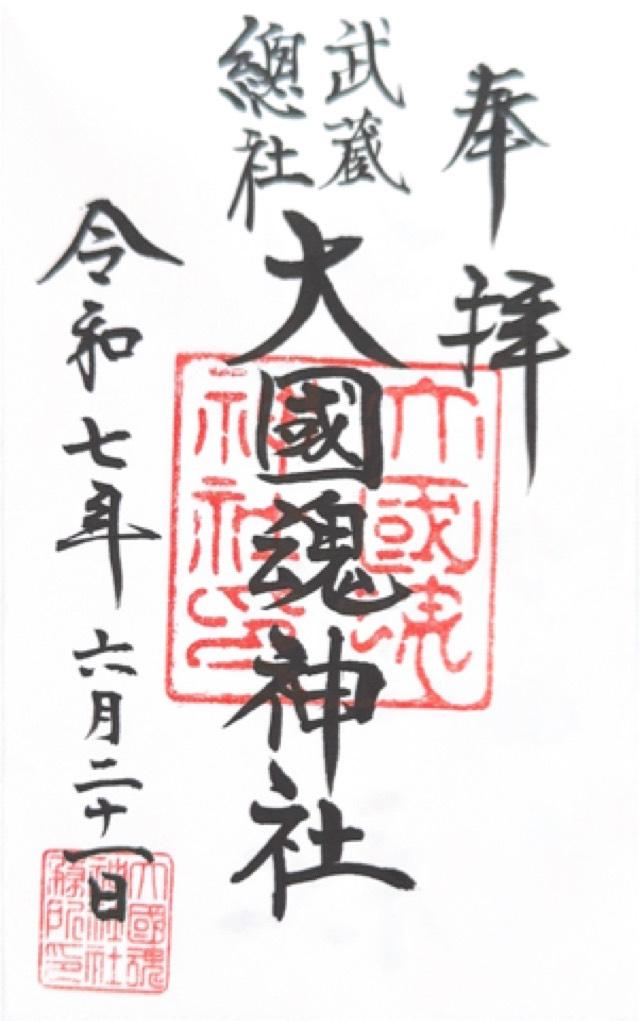 奉拝
武蔵
總社
大國魂神社
令和七年六月二十一日
大國魂
神社印
大國魂
神社社
務所印